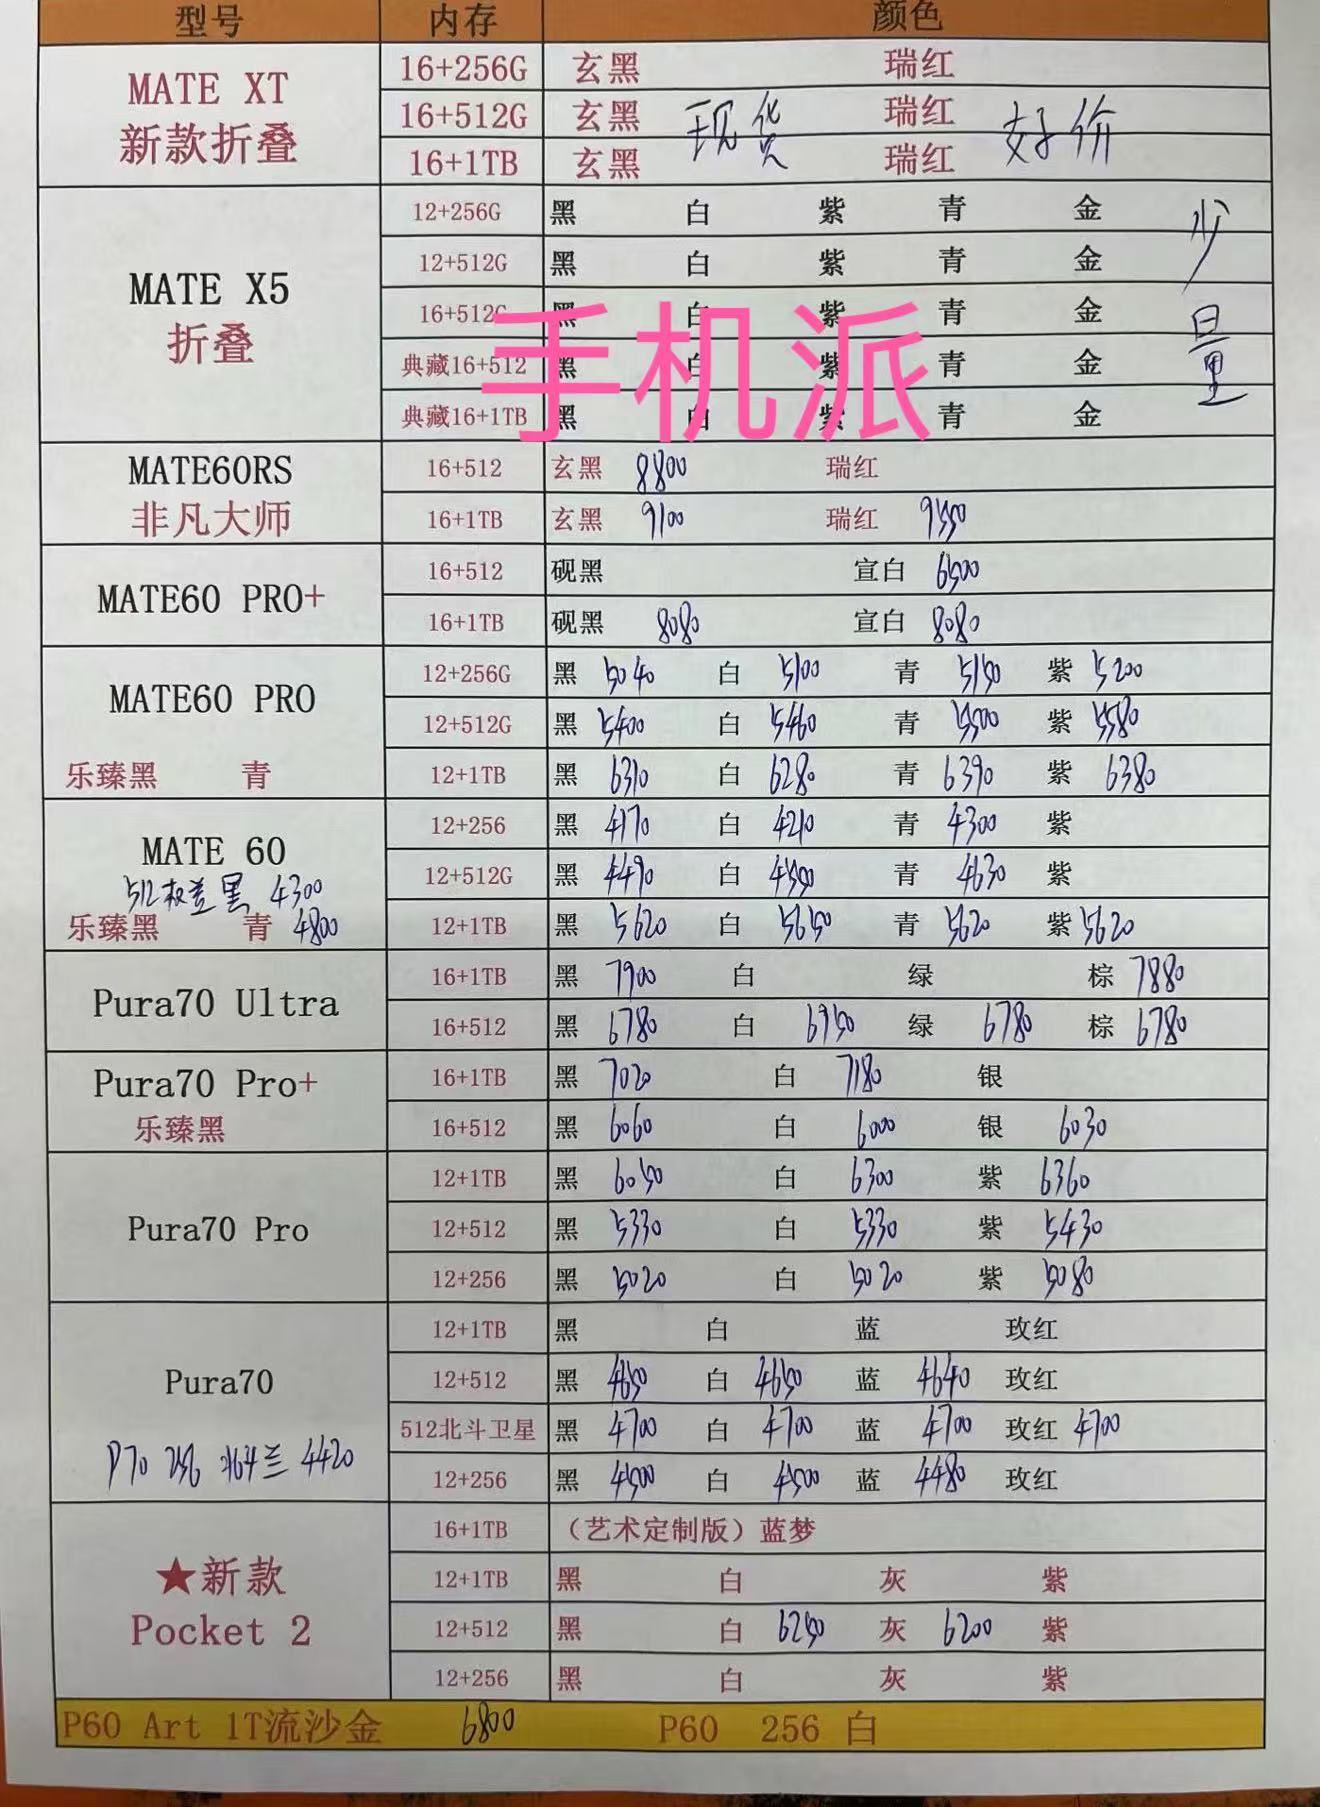 型号 内存 颜色
MATE XT 16+256G 玄黑 瑞红
新款折叠 16+512G 玄黑 现货 瑞红 好价
16+1TB 玄黑 瑞红
12+256G 黑 白 紫 青 金 少量
12+512G 黑 白 紫 青 金
MATE X5 16+512G 黑 白 紫 青 金
折叠 典藏16+512 黑 白 紫 青 金
典藏16+1TB 黑 白 紫 青 金
手机派
MATE60RS 16+512 玄黑 8800 瑞红
非凡大师 16+1TB 玄黑 9100 瑞红 9550
MATE60 PRO+ 16+512 砚黑 宣白 6500
16+1TB 砚黑 8080 宣白 8080
MATE60 PRO 12+256G 黑 5040 白 5100 青 5150 紫 5200
12+512G 黑 5400 白 5460 青 5500 紫 5580
乐臻黑 青 12+1TB 黑 6310 白 6280 青 6390 紫 6380
MATE 60 12+256 黑 4170 白 4210 青 4300 紫
512 黑 4300 12+512G 黑 4490 白 4550 青 4630 紫
乐臻黑 青 4800 12+1TB 黑 5620 白 5650 青 5620 紫 5620
Pura70 Ultra 16+1TB 黑 7900 白 绿 棕 7880
16+512 黑 6780 白 6950 绿 6780 棕 6780
Pura70 Pro+ 16+1TB 黑 7020 白 7180 银
乐臻黑 16+512 黑 6060 白 6000 银 6030
12+1TB 黑 6050 白 6300 紫 6360
Pura70 Pro 12+512 黑 5330 白 5330 紫 5430
12+256 黑 5020 白 5020 紫 5080
12+1TB 黑 白 蓝 玫红
Pura70 12+512 黑 4650 白 4650 蓝 4640 玫红
512北斗卫星 黑 4700 白 4700 蓝 4700 玫红 4700
P70 256 兰 4420 12+256 黑 4500 白 4500 蓝 4480 玫红
16+1TB （艺术定制版）蓝梦
★新款 12+1TB 黑 白 灰 紫
Pocket 2 12+512 黑 白 6250 灰 6200 紫
12+256 黑 白 灰 紫
P60 Art 1T流沙金 6800 P60 256 白